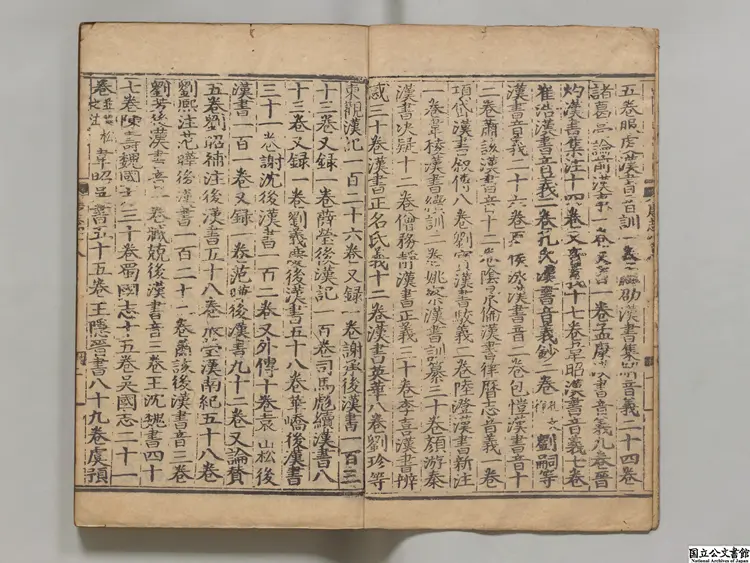 五卷服虔漢書音訓一卷應劭漢書集解音義二十四卷
諸葛亮論前漢事一卷又音一卷孟康漢書音義九卷晉
灼漢書集注十四卷又音義十七卷韋昭漢書音義七卷
崔浩漢書音義二卷孔氏漢書音義鈔二卷孔文祥劉嗣等
漢書音義二十六卷夏侯泳漢書音二卷包愷漢書音十
二卷蕭該漢書音十二卷陰景倫漢書律曆志音義一卷
項岱漢書敘傳八卷劉寶漢書駁義二卷陸澄漢書新注
一卷韋稜漢書續訓二卷姚察漢書訓纂三十卷顏游秦
漢書決疑十二卷僧務靜漢書正義三十卷李喜漢書辨
惑三十卷漢書正名氏義十二卷漢書英華八卷劉珍等
東觀漢記一百二十六卷又録一卷謝承後漢書一百三
十三卷又録一卷薛瑩後漢記一百卷司馬彪續漢書八
十三卷又録一卷劉義慶後漢書五十八卷華嶠後漢書
三十一卷謝沈後漢書一百二卷又外傳十卷袁山松後
漢書一百一卷又録一卷范曄後漢書九十二卷又論贊
五卷劉昭補注後漢書五十八卷張瑩漢南紀五十八卷
劉熙注范曄後漢書一百二十一卷蕭該後漢書音三卷
劉芳後漢書音一卷臧兢後漢書音三卷王沈魏書四十
七卷陳壽魏國志三十卷蜀國志十五卷吳國志二十一
卷並裴松之注韋昭吳書五十五卷王隱晉書八十九卷虞預
国立公文書館
National Archives of Japan